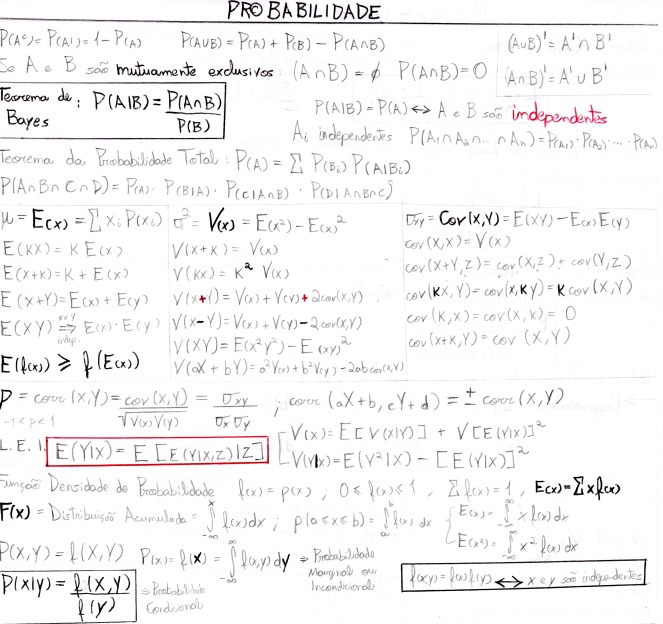 PROBABILIDADE
P(Aᶜ) = P(A') = 1 - P(A)   P(A∪B) = P(A) + P(B) - P(A∩B)   (A∪B)' = A' ∩ B'
Se A e B são mutuamente exclusivos: (A∩B) = ∅   P(A∩B) = 0   (A∩B)' = A' ∪ B'
Teorema de Bayes : P(A|B) = P(A∩B) / P(B)
P(A|B) = P(A) ↔ A e B são independentes
Ai independentes P(A1∩A2∩...∩An) = P(A1)·P(A2)·...·P(An)
Teorema da Probabilidade Total : P(A) = ∑ P(Bi) P(A|Bi)
P(A∩B∩C∩D) = P(A) · P(B|A) · P(C|A∩B) · P(D|A∩B∩C)
μ = E(x) = ∑ xi P(xi)
E(KX) = K E(x)
E(x+K) = K + E(x)
E(x+Y) = E(x) + E(y)
E(XY) ⇒ E(x)·E(y)
x e Y indep.
E(f(x)) ⩾ f(E(x))
σ² = V(x) = E(x²) - E(x)²
V(x+k) = V(x)
V(kx) = K² V(x)
V(x+Y) = V(x) + V(Y) + 2cov(x,Y)
V(x-Y) = V(x) + V(Y) - 2cov(x,Y)
V(XY) = E(x²y²) - E(xy)²
V(aX + bY) = a²V(x) + b²V(y) - 2ab cov(x,Y)
σxy = Cov(x,Y) = E(XY) - E(x)E(y)
cov(X,X) = V(x)
cov(X+Y,Z) = cov(X,Z) + cov(Y,Z)
cov(KX,Y) = cov(x,KY) = K cov(X,Y)
cov(K,X) = cov(X,K) = 0
cov(x+K,Y) = cov(X,Y)
ρ = corr(X,Y) = cov(X,Y) / √V(x)V(Y) = σxy / σxσy ; corr(aX+b, cY+d) = ± corr(X,Y)
-1<ρ<1
L.E.I. E(Y|X) = E[E(Y|X,Z)|Z]
V(x) = E[V(X|Y)] + V[E(Y|X)]²
V(Y|X) = E(Y²|X) - [E(Y|X)]²
Função Densidade de Probabilidade f(x) = p(x) ; 0 ≤ f(x) ≤ 1 , ∑f(x) = 1 , E(x) = ∑ x f(x)
F(x) = Distribuição Acumulada = ∫₋∞ˣ f(x)dx ; p(a≤x≤b) = ∫ₐᵇ f(x) dx
E(x) = ∫₋∞^∞ x f(x) dx
E(x²) = ∫₋∞^∞ x² f(x) dx
P(X,Y) = f(X,Y)   P(x) = f(x) = ∫₋∞^∞ f(x,y) dy ⇒ Probabilidade Marginal ou Incondicional
P(x|y) = f(X,Y) / f(Y) ⇒ Probabilidade Condicional
f(x,y) = f(x) f(y) ↔ x e y são independentes